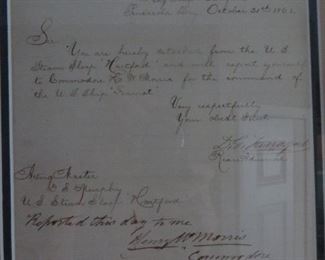 Pensacola Bay October 31st 1862
Sir
You are hereby detached from the U S
Steam Sloop "Hartford" and will report yourself
to Commodore H W Morris for the command of
the U. S. Ship
Very respectfully
Your Obdt Servt
D. G. Farragut
Rear Admiral
Acting Master
U. S. Steam Sloop Hartford
Reported this day to me
Henry W Morris
Commodore